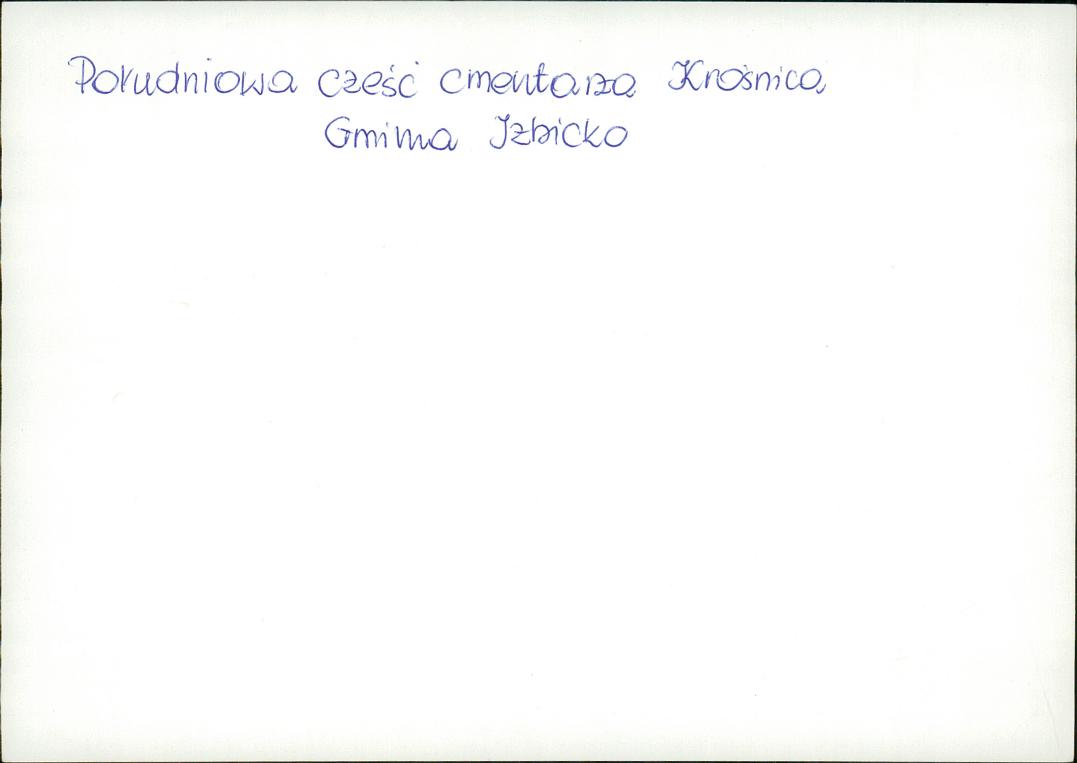 Południowa cześć cmentarza Krośnica
Gmina Izbicko